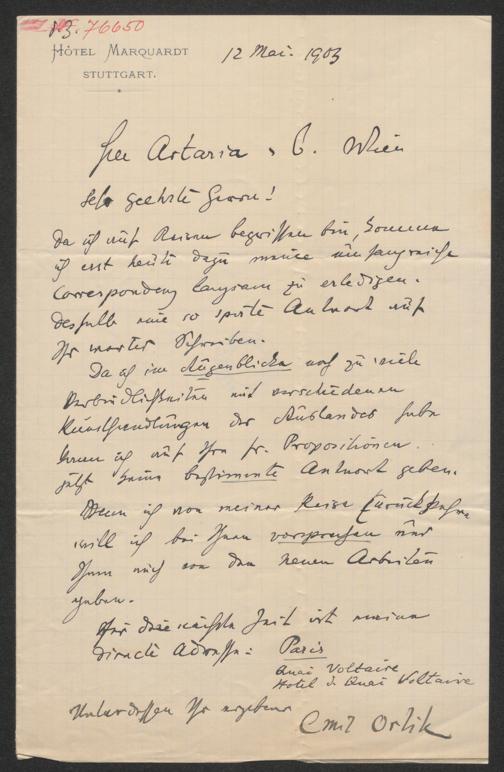 I.N. 76650
HÔTEL MARQUARDT
STUTTGART.
12 Mai. 1903
Artaria & C. Wien
Sehr geehrte Herren!
Da ich auf Reisen begriffen bin, komme
ich erst heute dazu meine umfangreiche
Correspondenz langsam zu erledigen.
deshalb eine so späte Antwort auf
Ihr wertes Schreiben.
Da ich im Augenblicke noch zu viele
Verbindlichkeiten mit verschiedenen
Kunsthandlungen des Auslandes habe
kann ich auf Ihre fr. Propositionen
jetzt keine bestimmte Antwort geben.
Wenn ich von meiner Reise zurückkehre
will ich bei Ihnen vorsprechen und
Ihnen auch von den neuen Arbeiten
geben.
Für die nächste Zeit ist meine
directe Adresse: Paris
Quai Voltaire
Hotel d. Quai Voltaire
Unterdessen Ihr ergebener
Emil Orlik